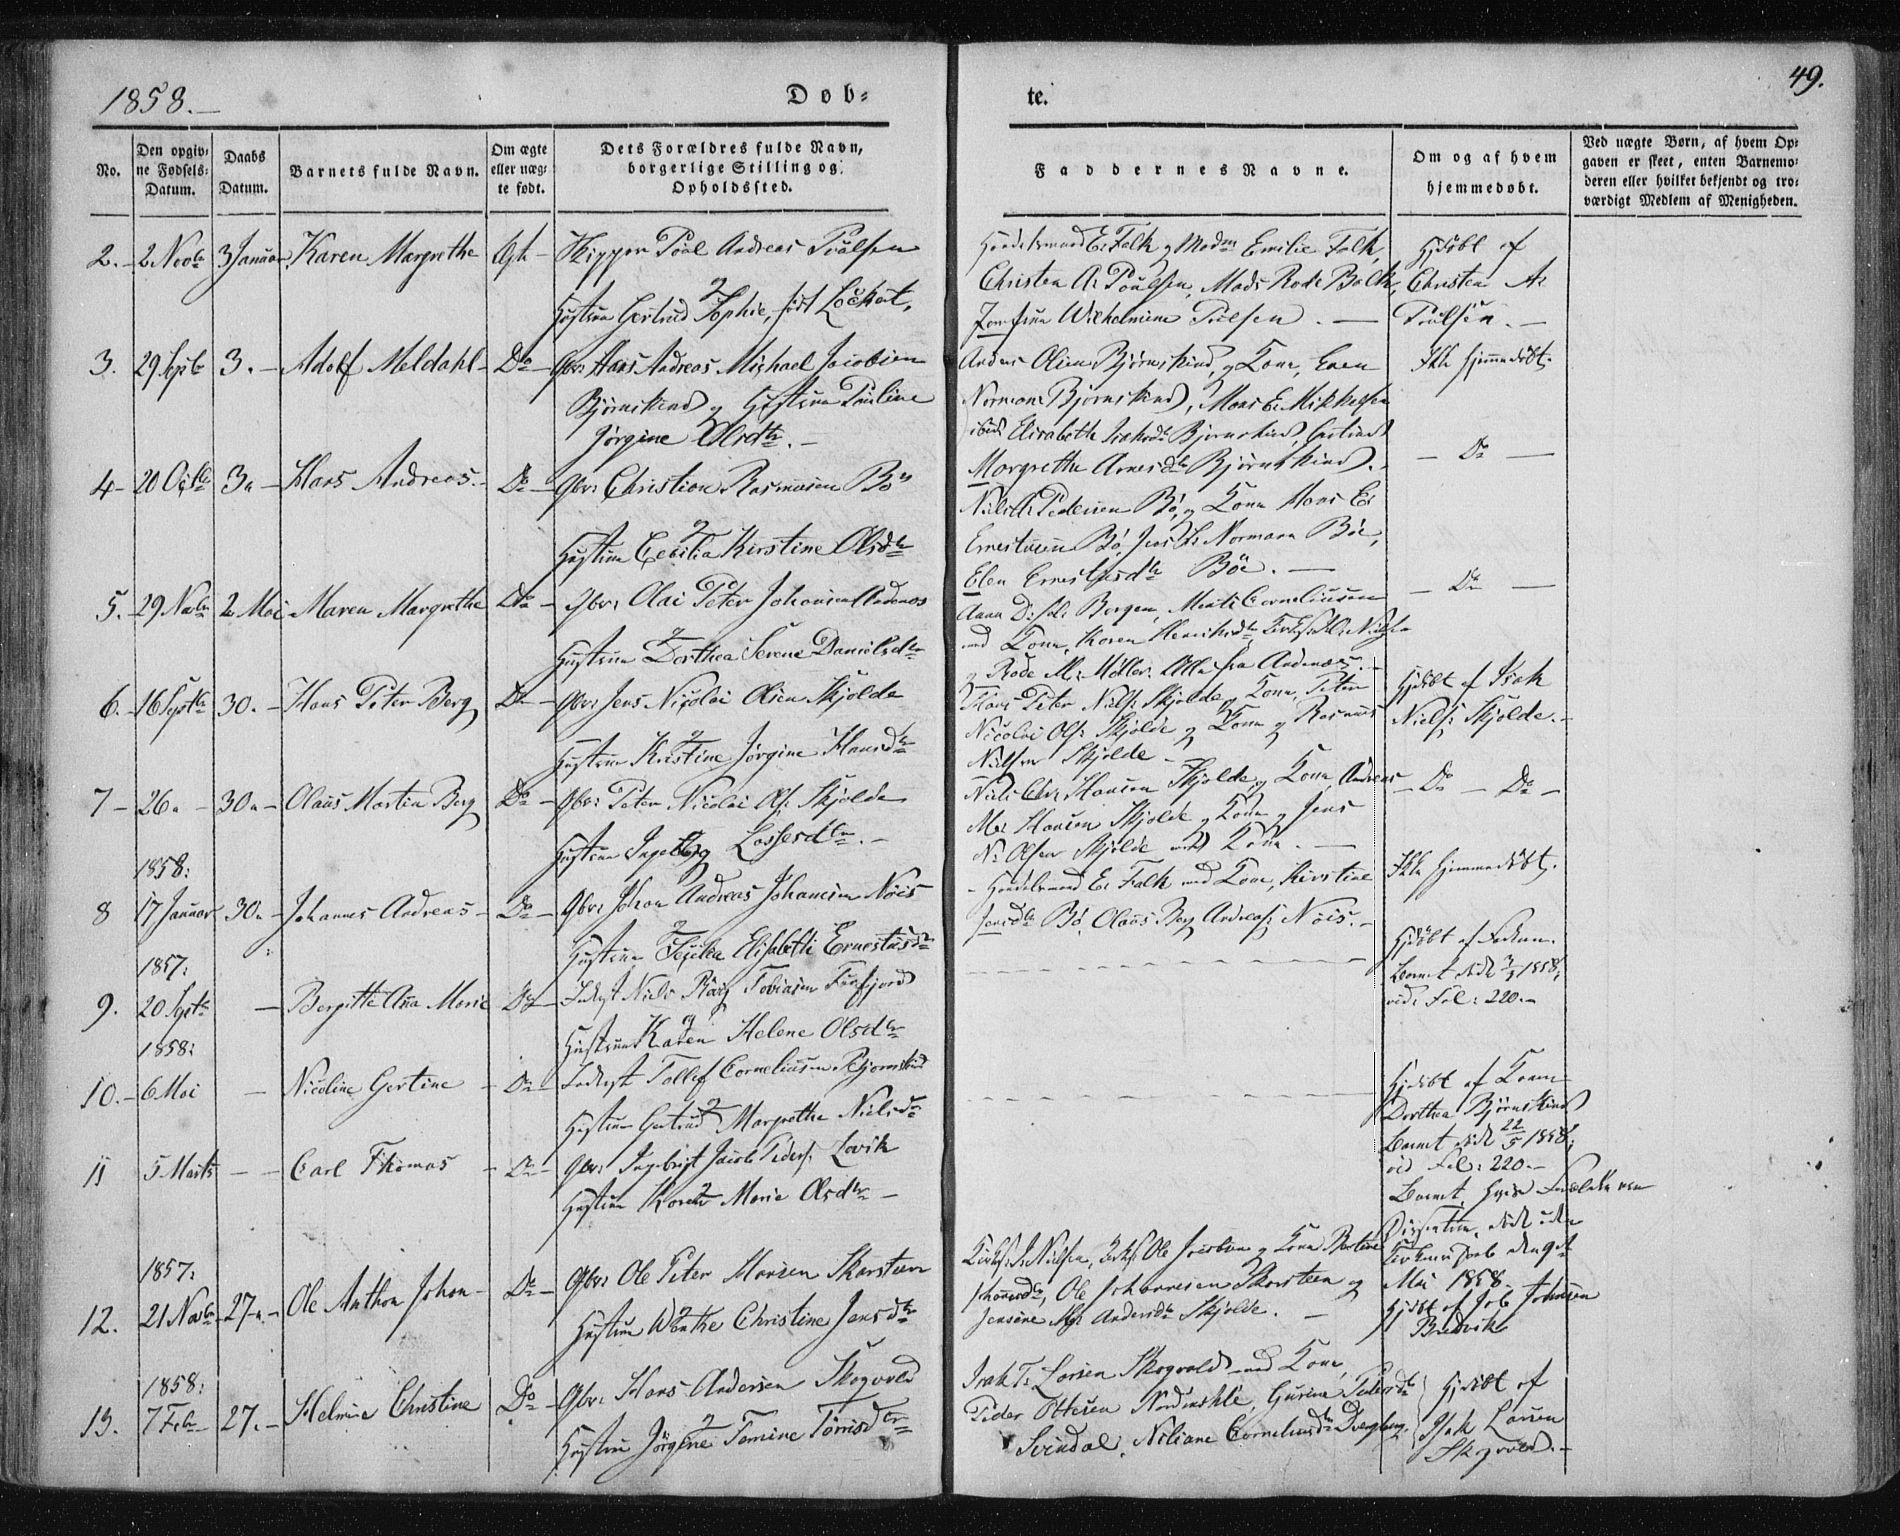 1858.
Døb-
te.
49.
No.
Den opgiv-
ne Fødsels-
Datum.
Daabs
Datum.
Barnets fulde Navn.
Om ægte
eller uæg-
te født.
Dets Forældres fulde Navn,
borgerlige Stilling og
Opholdssted.
Faddernes Navne.
Om og af hvem
hjemmedøbt.
Ved uægte Børn, af hvem Op-
gaven er skeet, enten Barnemo-
deren eller hvilket bekjendt og tro-
værdigt Medlem af Menigheden.
2. 2 Novbr 3 Januar Karen Margrethe Ægte Skipper Poul Andreas Poulsen
Hustrue Gertrud Sophie, født Lockert,
Handelsmand E. Falk og Madm Emilie Falk,
Christen A. Poulsen, Mads Rode Balk,
Jomfrue Wilhelmine Poulsen.
Hjdøbt af
Christen A.
Poulsen.
3. 29 Septbr 3. Adolf Meldahl Do Gbr: Hans Andreas Michael Jacobsen
Bjørnskind og Hustrue Pauline
Jørgine Olsdtr.
Anders Olsen Bjørnskind, og Kone, Even
Normann Bjørnskind, Mons E. Mikkelsen
ibid: Elisabeth Isaksdtr Bjørnskind,
Margrethe Arnesdtr Bjørnskind.
Ikke hjemmedøbt.
4 20 Octbr 3 Hans Andreas. Do Gbr: Christian Rasmusen Bø
Hustrue Cecilia Kirstine Olsdtr
Niels Pedersen Bø, og Kone Hans E.
Ernestusen Bø, Jens Normann Bøe,
Elen Ernestusdtr Böe.
Do
5. 29 Novbr 2 Mai Maren Margrethe Do Gbr: Olai Peter Johansen Andenæs
Hustrue Dorthea Serene Danielsdtr
Anna Borgen, Corneliusen
med Kone, Karen Henriksdtr,
og Rode M. Møller. Alle fra Andenæs.
Do
6. 16 Septbr 30. Hans Peter Berg Do Gbr: Jens Nicolai Olsen Skjolde
Hustrue Kirstine Jørgine Hansdtr
Hans Peter Niels: Skjolde og Kone, Peter
Nicolai Ols: Skjolde og Kone og Rasmus
Nielsen Skjolde
Hjdøbt af Isak
Niels: Skjolde.
7 26 30 Olaus Martin Berg Do Gbr: Peter Nicolai Ols: Skjolde
Hustrue Ingeborg Lassesdtr.
Niels Chr: Hansen Skjolde og Kone, Andreas
M: Hansen Skjolde og Kone og Jens
N: Olsen Skjolde med Kone.
Do Do
1858:
8 17 Januar 30 Johannes Andreas Do Gbr: Johan Andreas Johansen Nøis
Hustrue Elisabeth Ernestusdtr
Handelsmand E. Falk med Kone, Kirstine
Jensdtr Bø, Olaus Berg Andreas: Nöis.
Ikke hjemmedøbt.
1857:
9. 20 Septbr Bergitte Ana Marie Do Inderst Niels Tobiasen
Hustrue Karen Helene Olsdtr
Hjdøbt af Faderen.
Barnet død 3/1 1858,
vid: Fol: 220.
1858:
10. 6 Mai Nicoline Gertine Do Inderst Tollef Corneliusen Bjørnskind
Hustrue Gertrud Margrethe Nielsdtr
Hjdøbt af Konen
Dorthea Bjørnskind
Barnet død 22/5 1858,
vid: Fol: 220.
11 5 Marts Carl Thomas Do Gbr: Ingebrigt Jacob Peders: Lovik
Hustrue Karen Marie Olsdtr
Barnet, hvis Forældre ere
Dissentere, død uden
den 9de
Mai 1858.
1857:
12. 21 Novbr 27. Ole Anthon Johan Do Gbr: Ole Peter Hansen Skarstein
Hustrue Wenke Christine Jensdtr
Kirks: Nielsen, Ole Jacobsen og Kone
Johannesdtr, Ole Johannesen Skarsteen og
Jensine Andersdtr Skjolde.
Hjdøbt af Job Johnsen
Bredvik
1858:
13. 7 Febr 27. Helmine Christine Do Gbr: Hans Andersen Skogvold
Hustrue Jørgine Tomine Tørrisdtr
Isak T. Larsen Skogvold med Kone,
Peder Ottesen Nordmæhle, Gurine Pedersdtr
Svindal, Niliane Corneliusdtr Dverberg.
Hjdøbt af
Isak Larsen
Skogvold.